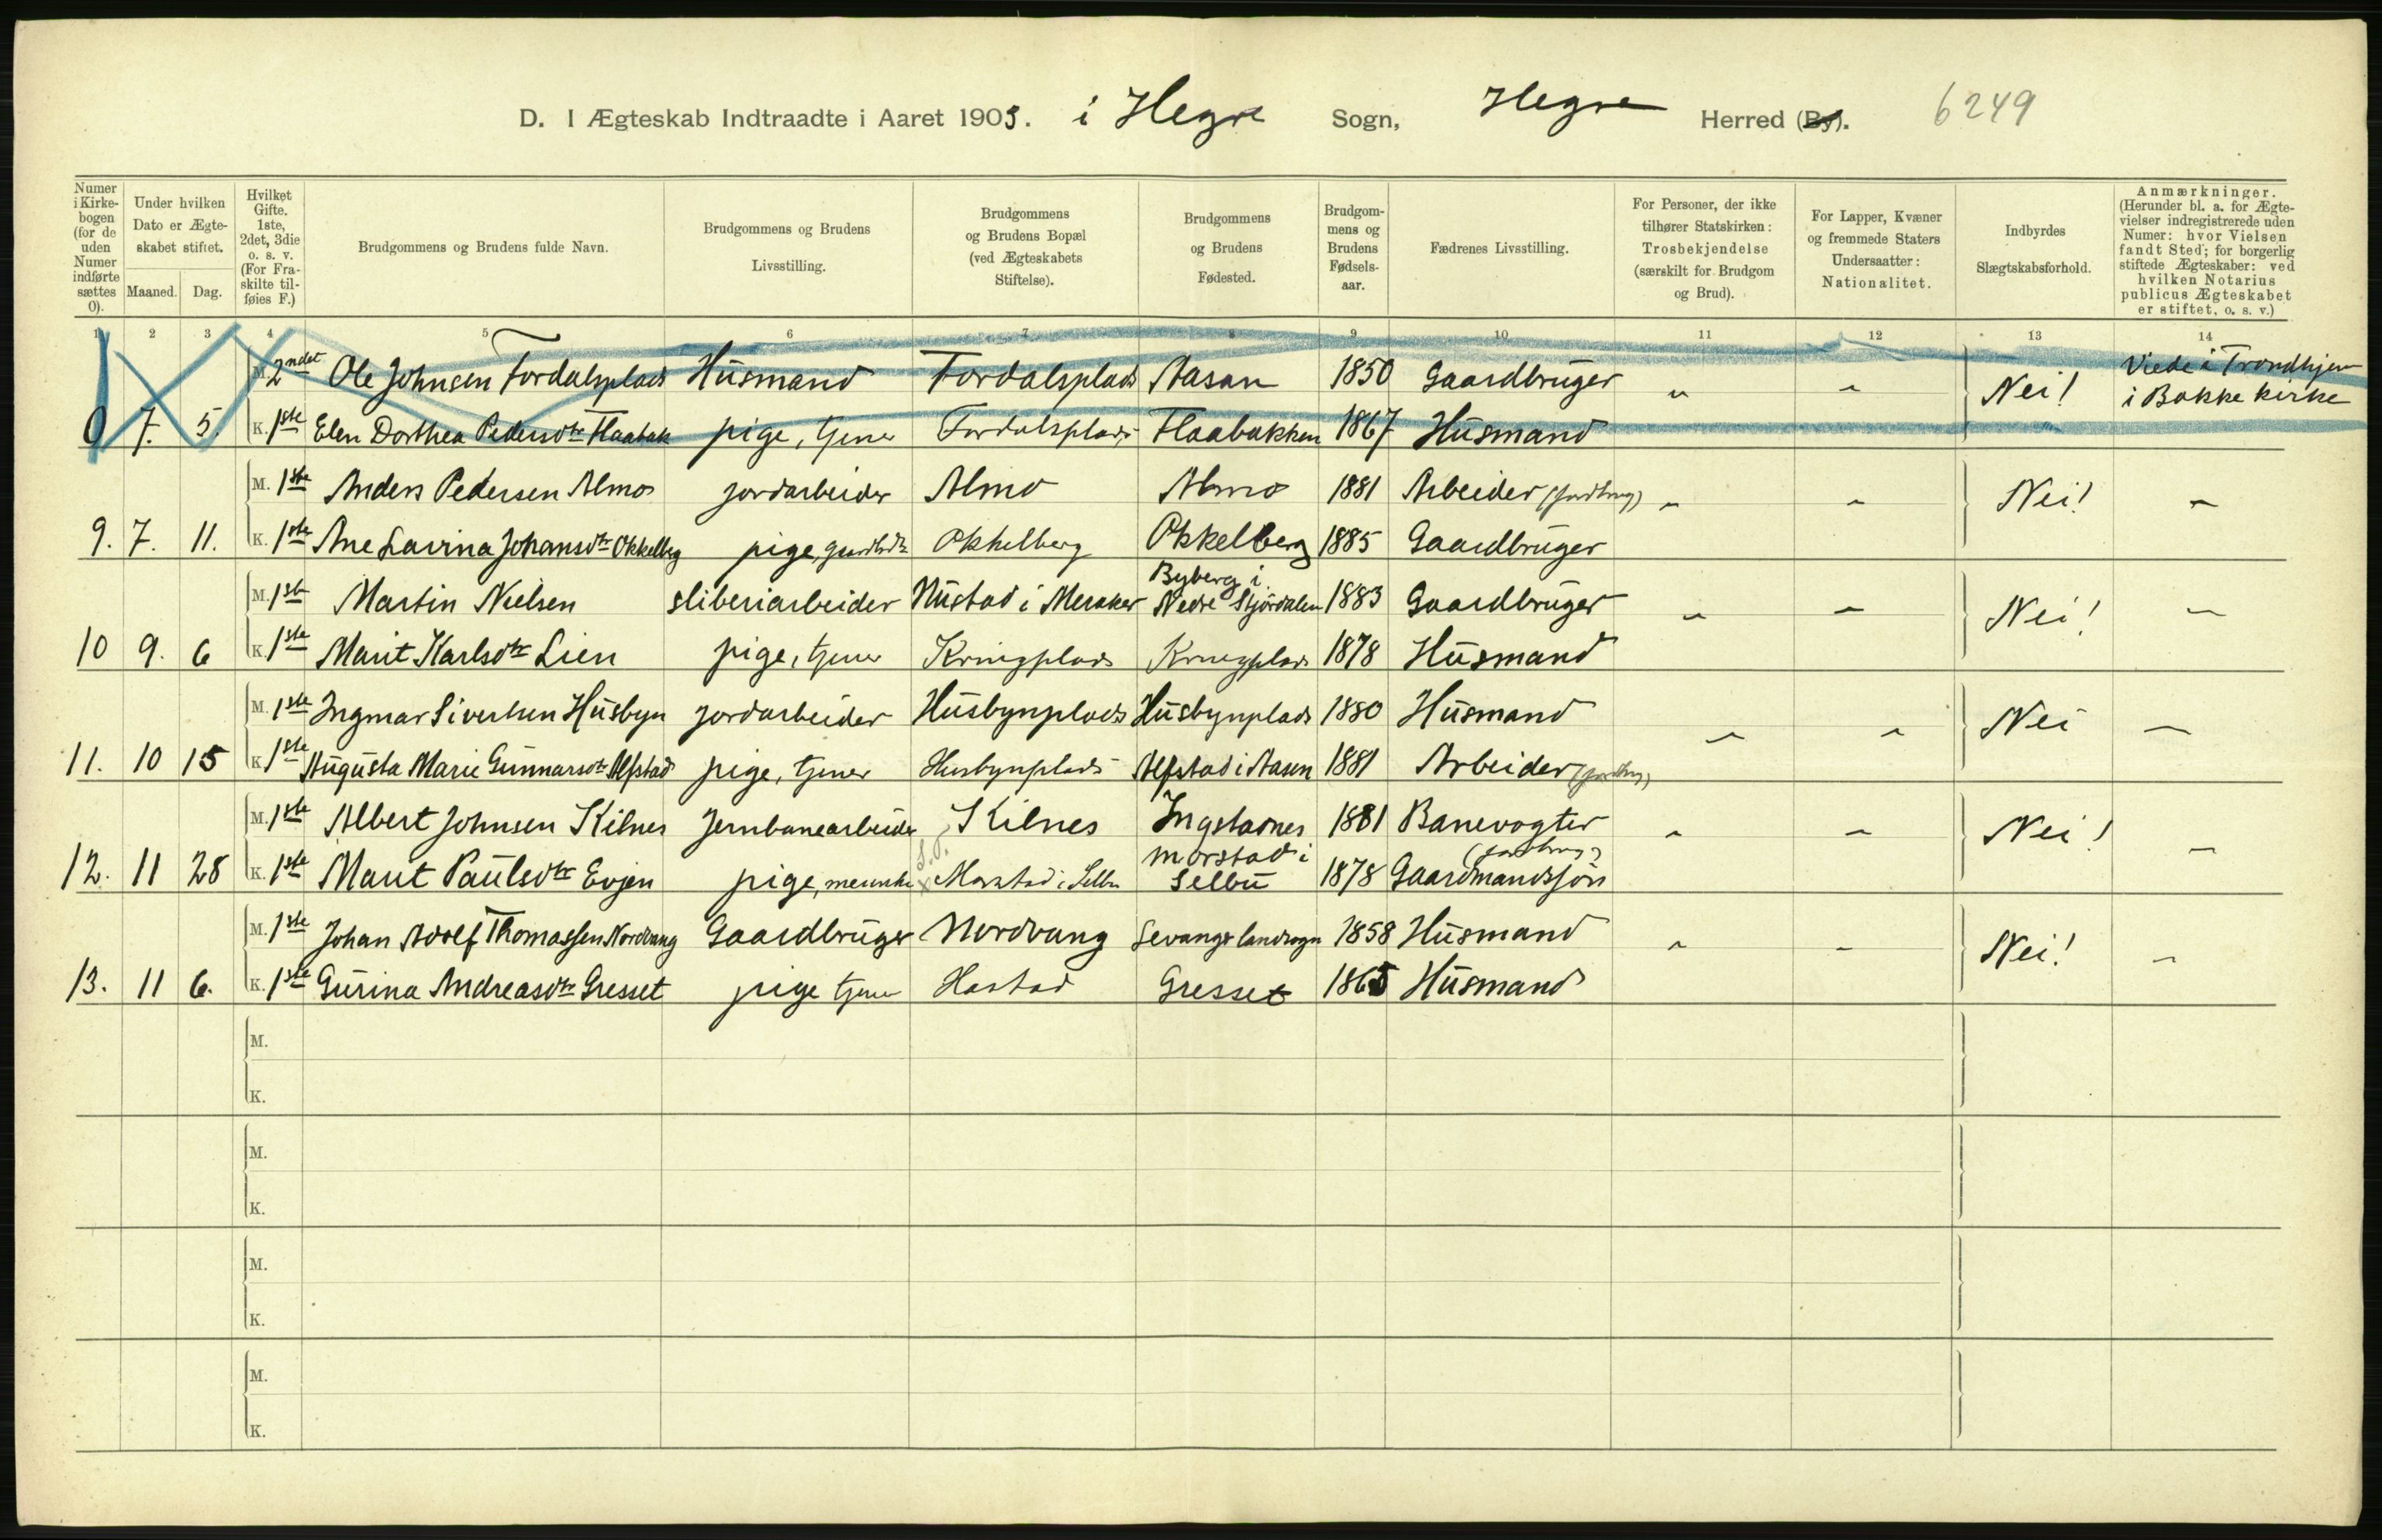 D. I Ægteskab Indtraadte i Aaret 1903. i Hegre Sogn, Hegre Herred (By). 6249
Numer i Kirkebogen (for de uden Numer indførte sættes 0).
Under hvilken Dato er Ægteskabet stiftet.
Maaned. Dag.
Hvilket Gifte. 1ste, 2det, 3die o. s. v. (For Fraskilte tilføies F.)
Brudgommens og Brudens fulde Navn.
Brudgommens og Brudens Livsstilling.
Brudgommens og Brudens Bopæl (ved Ægteskabets Stiftelse).
Brudgommens og Brudens Fødested.
Brudgommens og Brudens Fødselsaar.
Fædrenes Livsstilling.
For Personer, der ikke tilhører Statskirken: Trosbekjendelse (særskilt for Brudgom og Brud).
For Lapper, Kvæner og fremmede Staters Undersaatter: Nationalitet.
Indbyrdes Slægtskabsforhold.
Anmærkninger. (Herunder bl. a. for Ægtevielser indregistrerede uden Numer: hvor Vielsen fandt Sted; for borgerlig stiftede Ægteskaber: ved hvilken Notarius publicus Ægteskabet er stiftet, o. s. v.)
1 2 3 4 5 6 7 8 9 10 11 12 13 14
M. 2ndet Ole Johnsen Fordalsplads Husmand Fordalsplads Aasan 1850 Gaardbruger " - Nei! Viede i Trondhjem i Bakke kirke
0 7. 5. K. 1ste Elen Dorthea Pedersdtr Flaabak pige, tjener Fordalsplads Flaabakken 1867 Husmand
M. 1ste Anders Pedersen Almo jordarbeider Almo Almo 1881 Arbeider (jordbrug) - - Nei! -
9. 7. 11. K. 1ste Ane Lavina Johansdtr Okkelberg pige, Okkelberg Okkelberg 1885 Gaardbruger
M. 1ste Martin Nielsen sliberiarbeider Nustad i Meraker Byberg i Nedre Stjørdalen 1883 Gaardbruger - - Nei! -
10 9. 6 K. 1ste Marit Karlsdtr Lien pige, tjener Kringplads Kringplads 1878 Husmand
M. 1ste Ingmar Sivertsen Husbyn jordarbeider Husbynplads Husbynplads 1880 Husmand - - Nei -
11. 10 15 K. 1ste Augusta Marie Gunnarsdtr Alfstad pige, tjener Husbynplads Alfstad i Aasen 1881 Arbeider (jordbrug)
M. 1ste Albert Johnsen Kilnes Jernbanearbeider Kilnes Ingstadnes 1881 Banevogter - - Nei! -
12. 11 28 K. 1ste Marit Paulsdtr Evjen pige, Morstad i Selbu Morstad i Selbu 1878 Gaardmandssøn (jordbrug)
M. 1ste Johan Adolf Thomassen Nordvang Gaardbruger Nordvang Levanger landsogn 1858 Husmand - - Nei! -
13. 11 6. K. 1ste Gurina Andreasdtr Gresset pige tjener Hastad Gresset 1865 Husmand
M.
K.
M.
K.
M.
K.
M.
K.